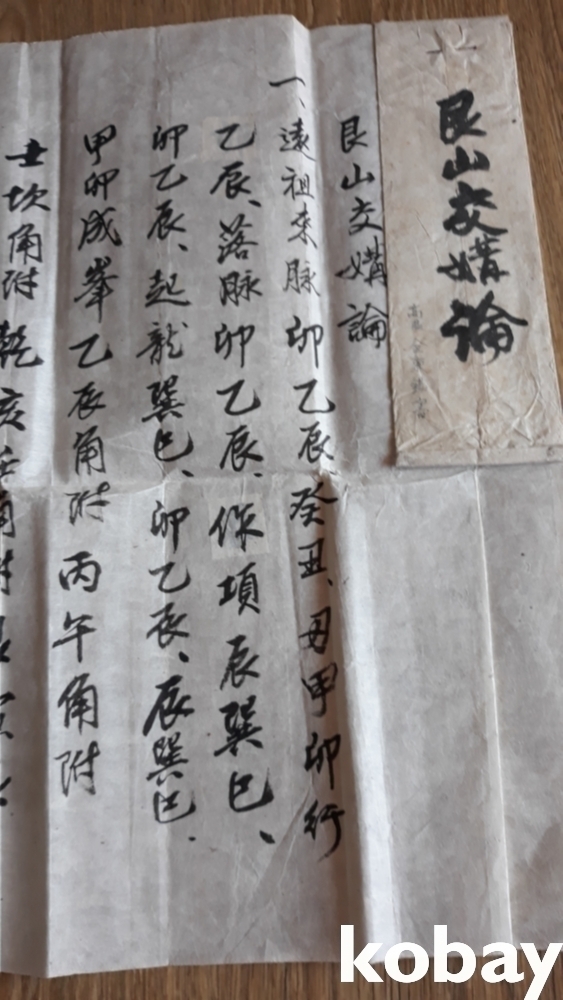 艮山交媾論
艮山交媾論
一、遠祖來脈卯乙辰、癸丑、丑甲卯行
乙辰、落脈卯乙辰、作項辰巽巳、
卯乙辰、起龍巽巳、卯乙辰、辰巽巳.
甲卯成峯乙辰角附丙午角附
坎角附乾亥壬角附
kobay